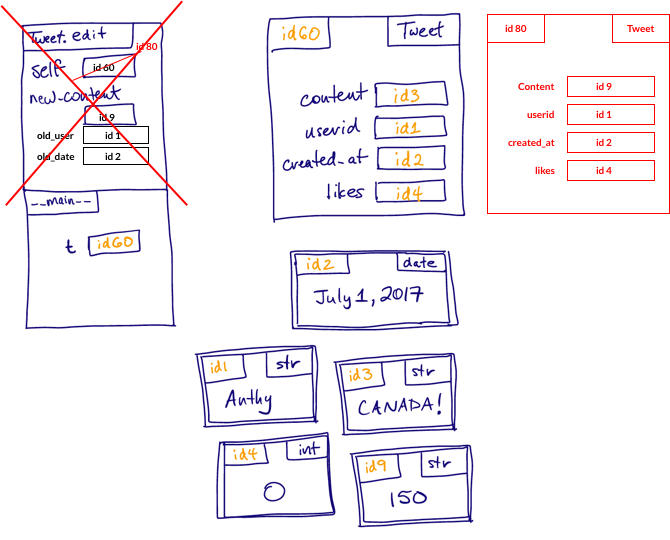 Tweet.edit
id 80
self id 60
new_content
id 9
old_user id 1
old_date id 2
__main__
t id60
id60 Tweet
content id3
userid id1
created_at id2
likes id4
id 80 Tweet
Content id 9
userid id 1
created_at id 2
likes id 4
id2 date
July 1, 2017
id1 str
Anthy
id3 str
CANADA!
id4 int
0
id9 str
150